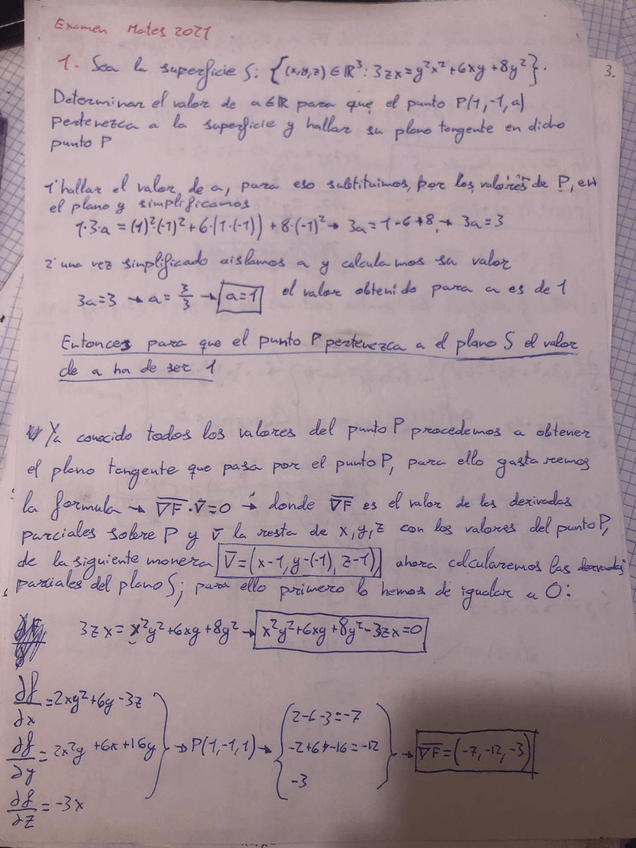 Examen Mates 2021
3.
1. Sea la superficie S: {(x,y,z) ∈ ℝ³: 3zx=y²x²+6xy+8y²}.
Determinar el valor de a∈ℝ para que el punto P(1,-1,a)
pertenezca a la superficie y hallar su plano tangente en dicho
punto P
1º hallar el valor de a, para eso substituimos por los valores de P, en
el plano y simplificamos
1·3·a = (1)²(-1)²+6·(1·(-1))+8·(-1)² → 3a=1-6+8, → 3a=3
2º una vez simplificado aislamos a y calculamos su valor
3a=3 → a=3/3 → a=1 el valor obtenido para a es de 1
Entonces para que el punto P pertenezca a el plano S el valor
de a ha de ser 1
Ya conocido todos los valores del punto P procedemos a obtener
el plano tangente que pasa por el punto P, para ello gastaremos
la formula → ∇F·v̄=0 → donde ∇F es el valor de las derivadas
parciales sobre P y v̄ la resta de x,y,z con los valores del punto P,
de la siguiente manera V̄=(x-1, y-(-1), z-1), ahora calcularemos las derivadas
parciales del plano S; para ello primero lo hemos de igualar a 0:
3zx=x²y²+6xy+8y² → x²y²+6xy+8y²-3zx=0
∂f/∂x=2xy²+6y-3z
∂f/∂y=2x²y+6x+16y → P(1,-1,1) → { 2-6-3=-7
-2+6+-16=-12
-3 } → ∇F=(-7,-12,-3)
∂f/∂z=-3x